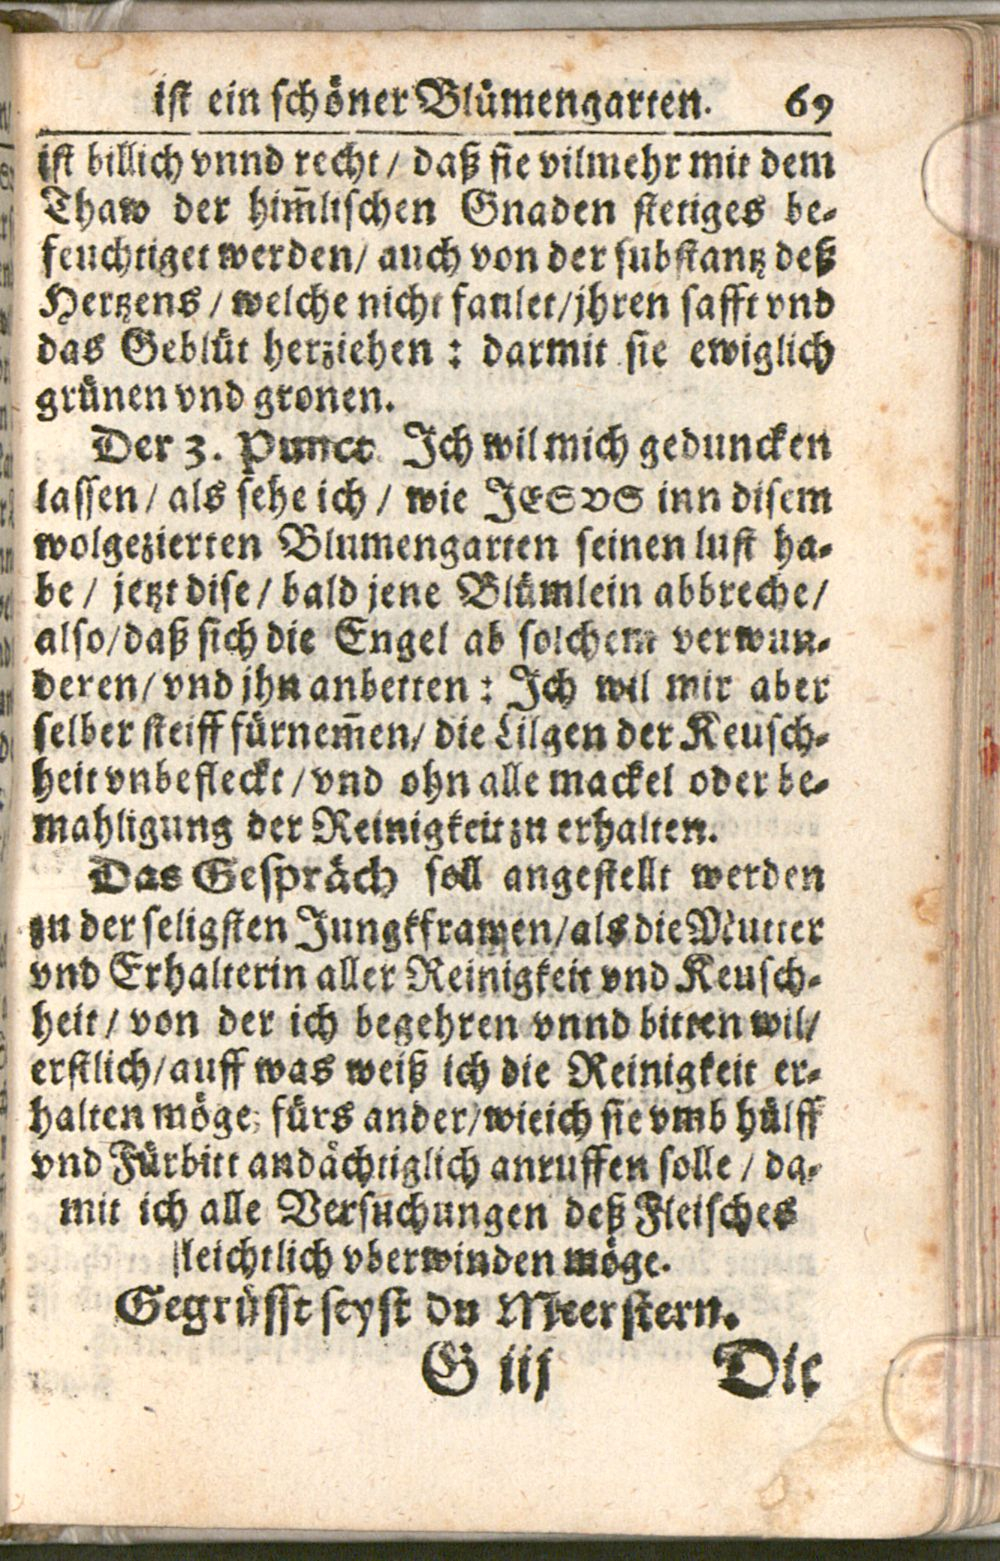 ist ein schöner Blůmengarten. 69
ist billich vnnd recht / daß sie vilmehr mit dem
Thaw der him̃lischen Gnaden stetiges be-
feuchtiget werden / auch von der substantz deß
Hertzens / welche nicht faulet / jhren safft vnd
das Geblüt herziehen : darmit sie ewiglich
grünen vnd gronen.
Der 3. Punct. Ich wil mich geduncken
lassen / als sehe ich / wie JESVS inn disem
wolgezierten Blumengarten seinen lust ha-
be / jetzt dise / bald jene Blümlein abbreche /
also / daß sich die Engel ab solchem verwun-
deren / vnd jhn anbetten : Ich wil mir aber
selber steiff fürnem̃en / die Lilgen der Keusch-
heit vnbefleckt / vnd ohn alle mackel oder be-
mahligung der Reinigkeit zu erhalten.
Das Gespräch soll angestellt werden
zu der seligsten Jungkfrawen / als die Mutter
vnd Erhalterin aller Reinigkeit vnd Keusch-
heit / von der ich begehren vnnd bitten wil /
erstlich / auff was weiß ich die Reinigkeit er-
halten möge; fürs ander / wie ich sie vmb hülff
vnd Fürbitt andächtiglich anruffen solle / da-
mit ich alle Versuchungen deß Fleisches
leichtlich vberwinden möge.
Gegrüsst seyst du Meerstern.
G iij Die